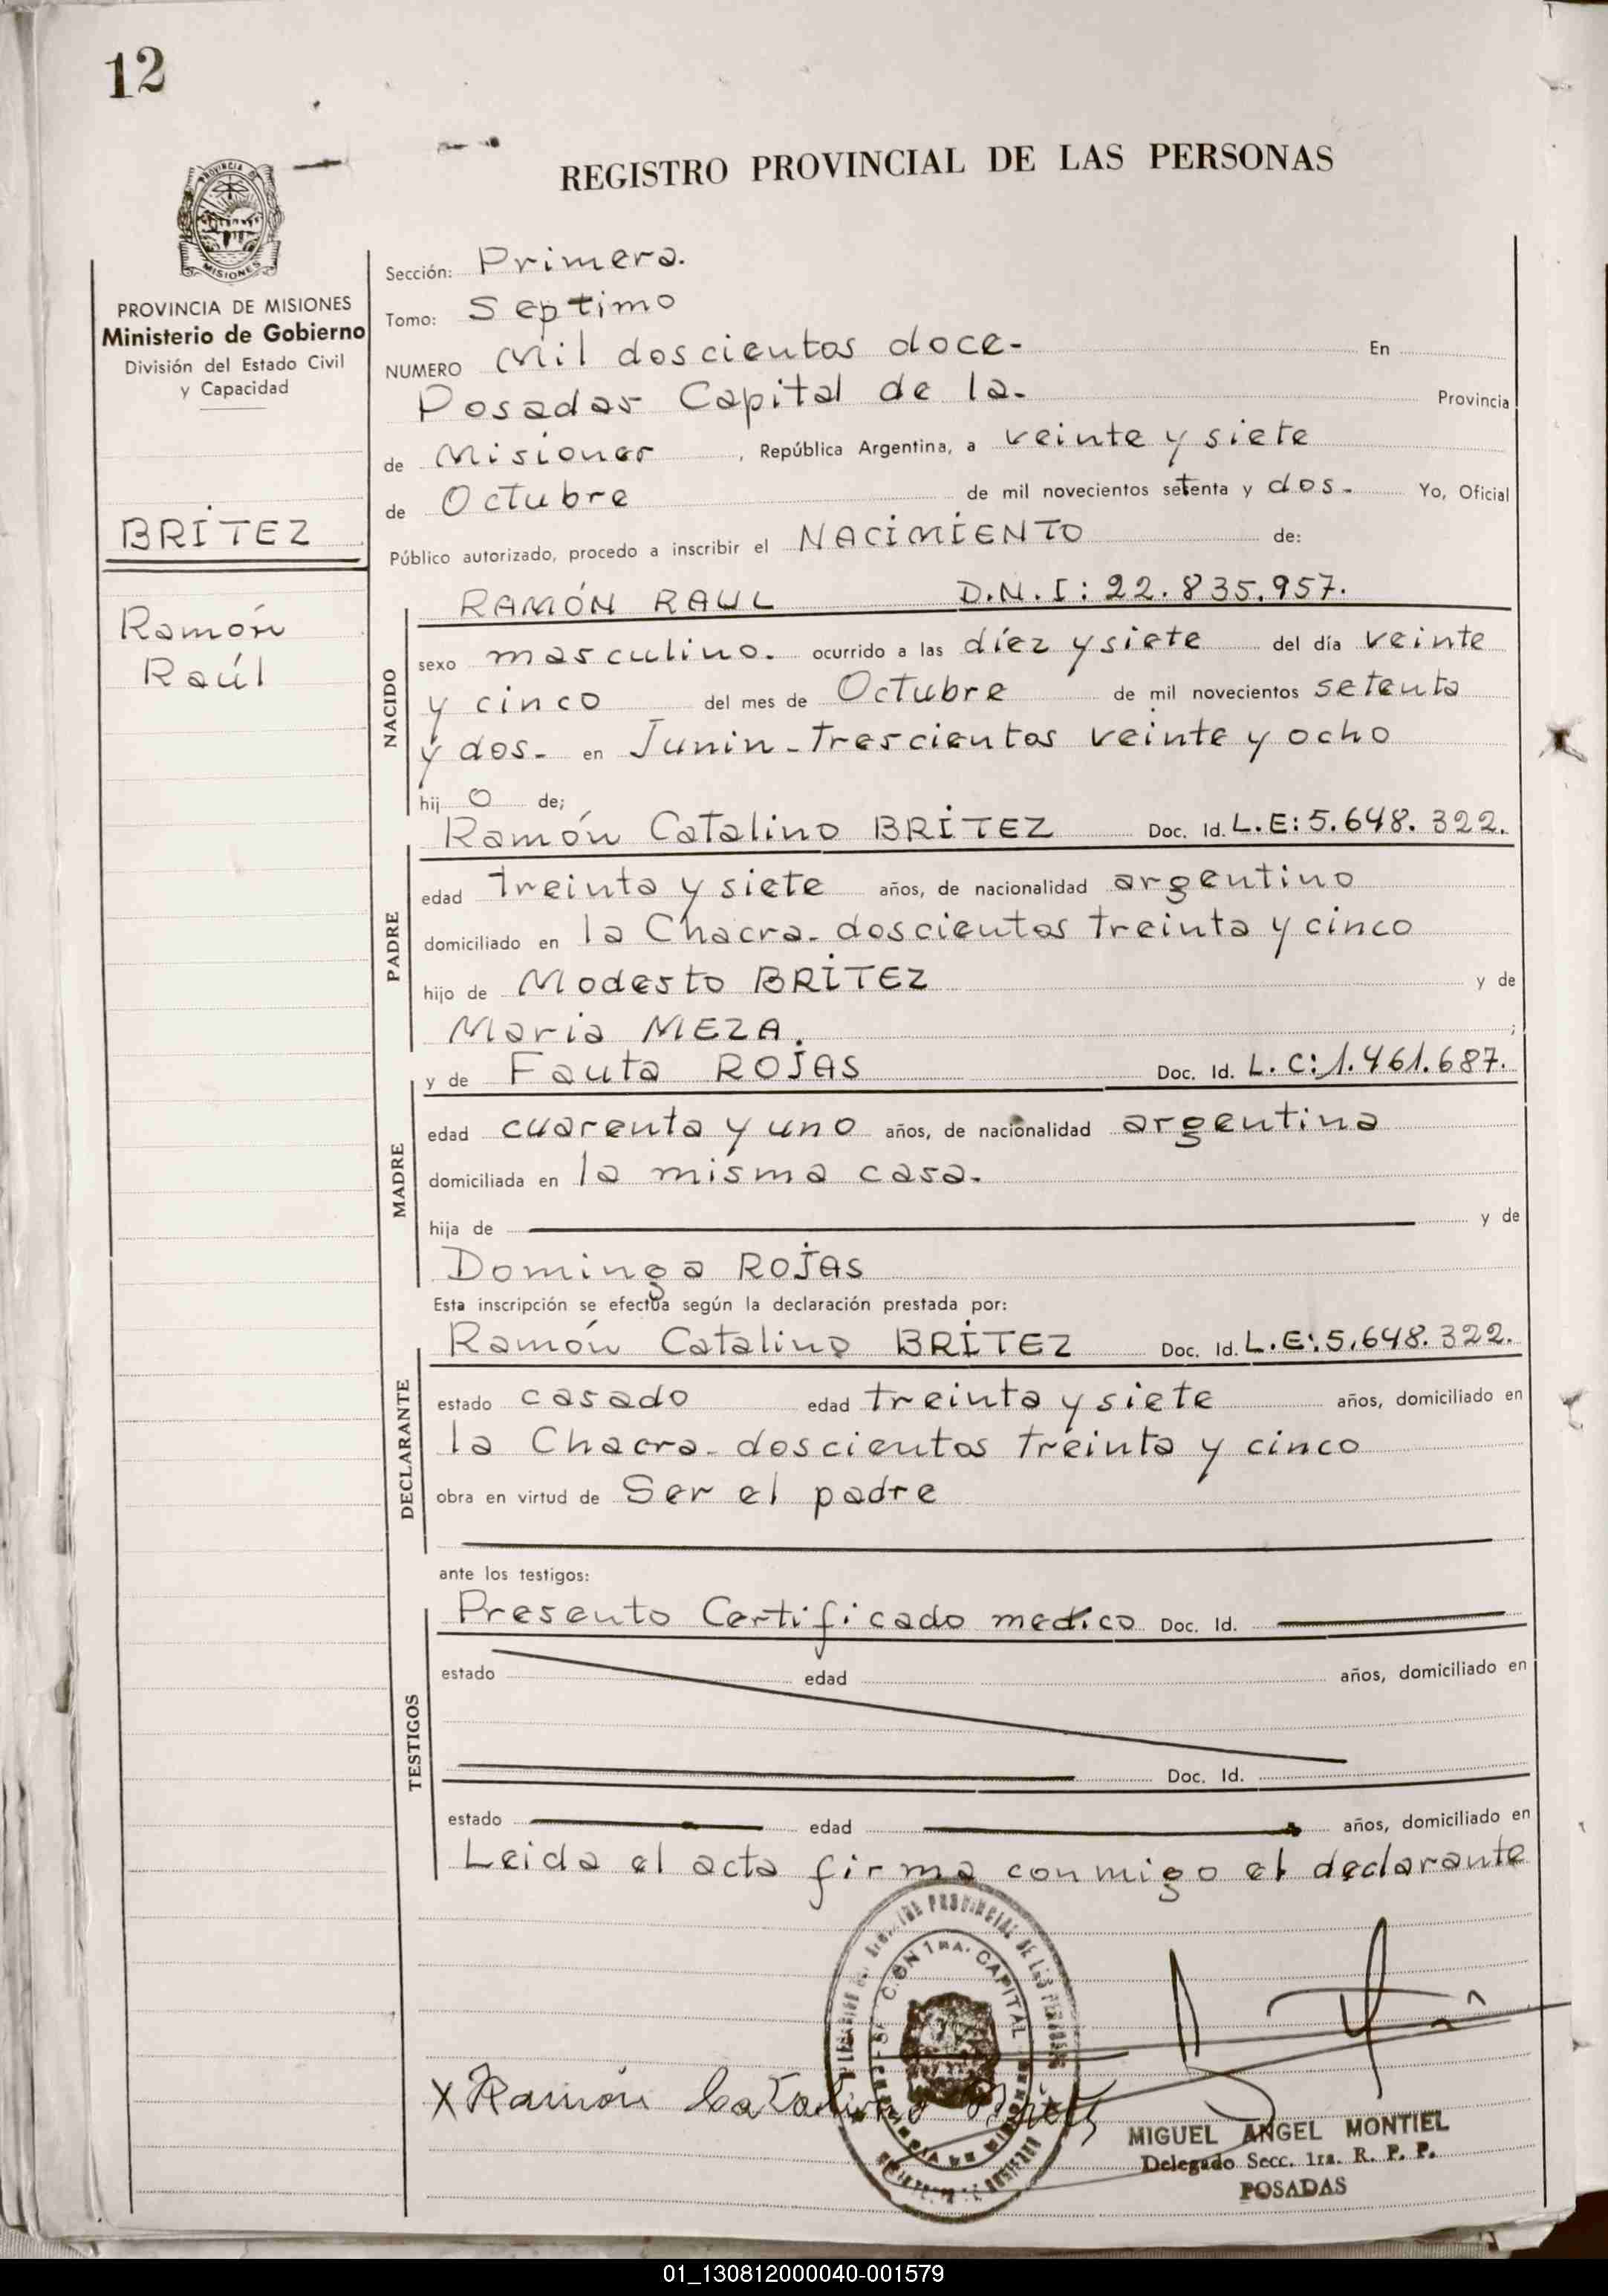 12
REGISTRO PROVINCIAL DE LAS PERSONAS
PROVINCIA DE
MISIONES
PROVINCIA DE MISIONES
Ministerio de Gobierno
División del Estado Civil
y Capacidad
BRITEZ
Ramón
Raúl
Sección: Primera.
Tomo: Septimo
NUMERO Mil doscientos doce- En
Posadas Capital de la- Provincia
de Misiones, República Argentina, a veinte y siete
de Octubre de mil novecientos setenta y dos- Yo, Oficial
Público autorizado, procedo a inscribir el NACIMIENTO de:
RAMÓN RAUL D.N.I: 22.835.957.
NACIDO
sexo masculino. ocurrido a las díez y siete del día veinte
y cinco del mes de Octubre de mil novecientos setenta
y dos- en Junin-Trescientos veinte y ocho
hij o de;
Ramón Catalino BRITEZ Doc. Id. L.E: 5.648.322.
PADRE
edad treinta y siete años, de nacionalidad argentino
domiciliado en la Chacra-doscientos treinta y cinco
hijo de Modesto BRITEZ y de
Maria MEZA. ;
y de Fauta ROJAS Doc. Id. L.C: 1.461.687.
MADRE
edad cuarenta y uno años, de nacionalidad argentina
domiciliada en la misma casa-
hija de y de
Dominga ROJAS
Esta inscripción se efectúa según la declaración prestada por:
Ramón Catalino BRITEZ Doc. Id. L.E: 5.648.322.
DECLARANTE
estado casado edad treinta y siete años, domiciliado en
la Chacra-doscientos treinta y cinco
obra en virtud de Ser el padre
ante los testigos:
Presento Certificado medico Doc. Id.
TESTIGOS
estado edad años, domiciliado en
Doc. Id.
estado edad años, domiciliado en
Leida el acta firma conmigo el declarante
PROVINCIAL DE LAS PERSONAS
1RA. CAPITAL
X Ramón Catalino Britez
MIGUEL ANGEL MONTIEL
Delegado Secc. 1ra. R. P. P.
POSADAS
01_130812000040-001579